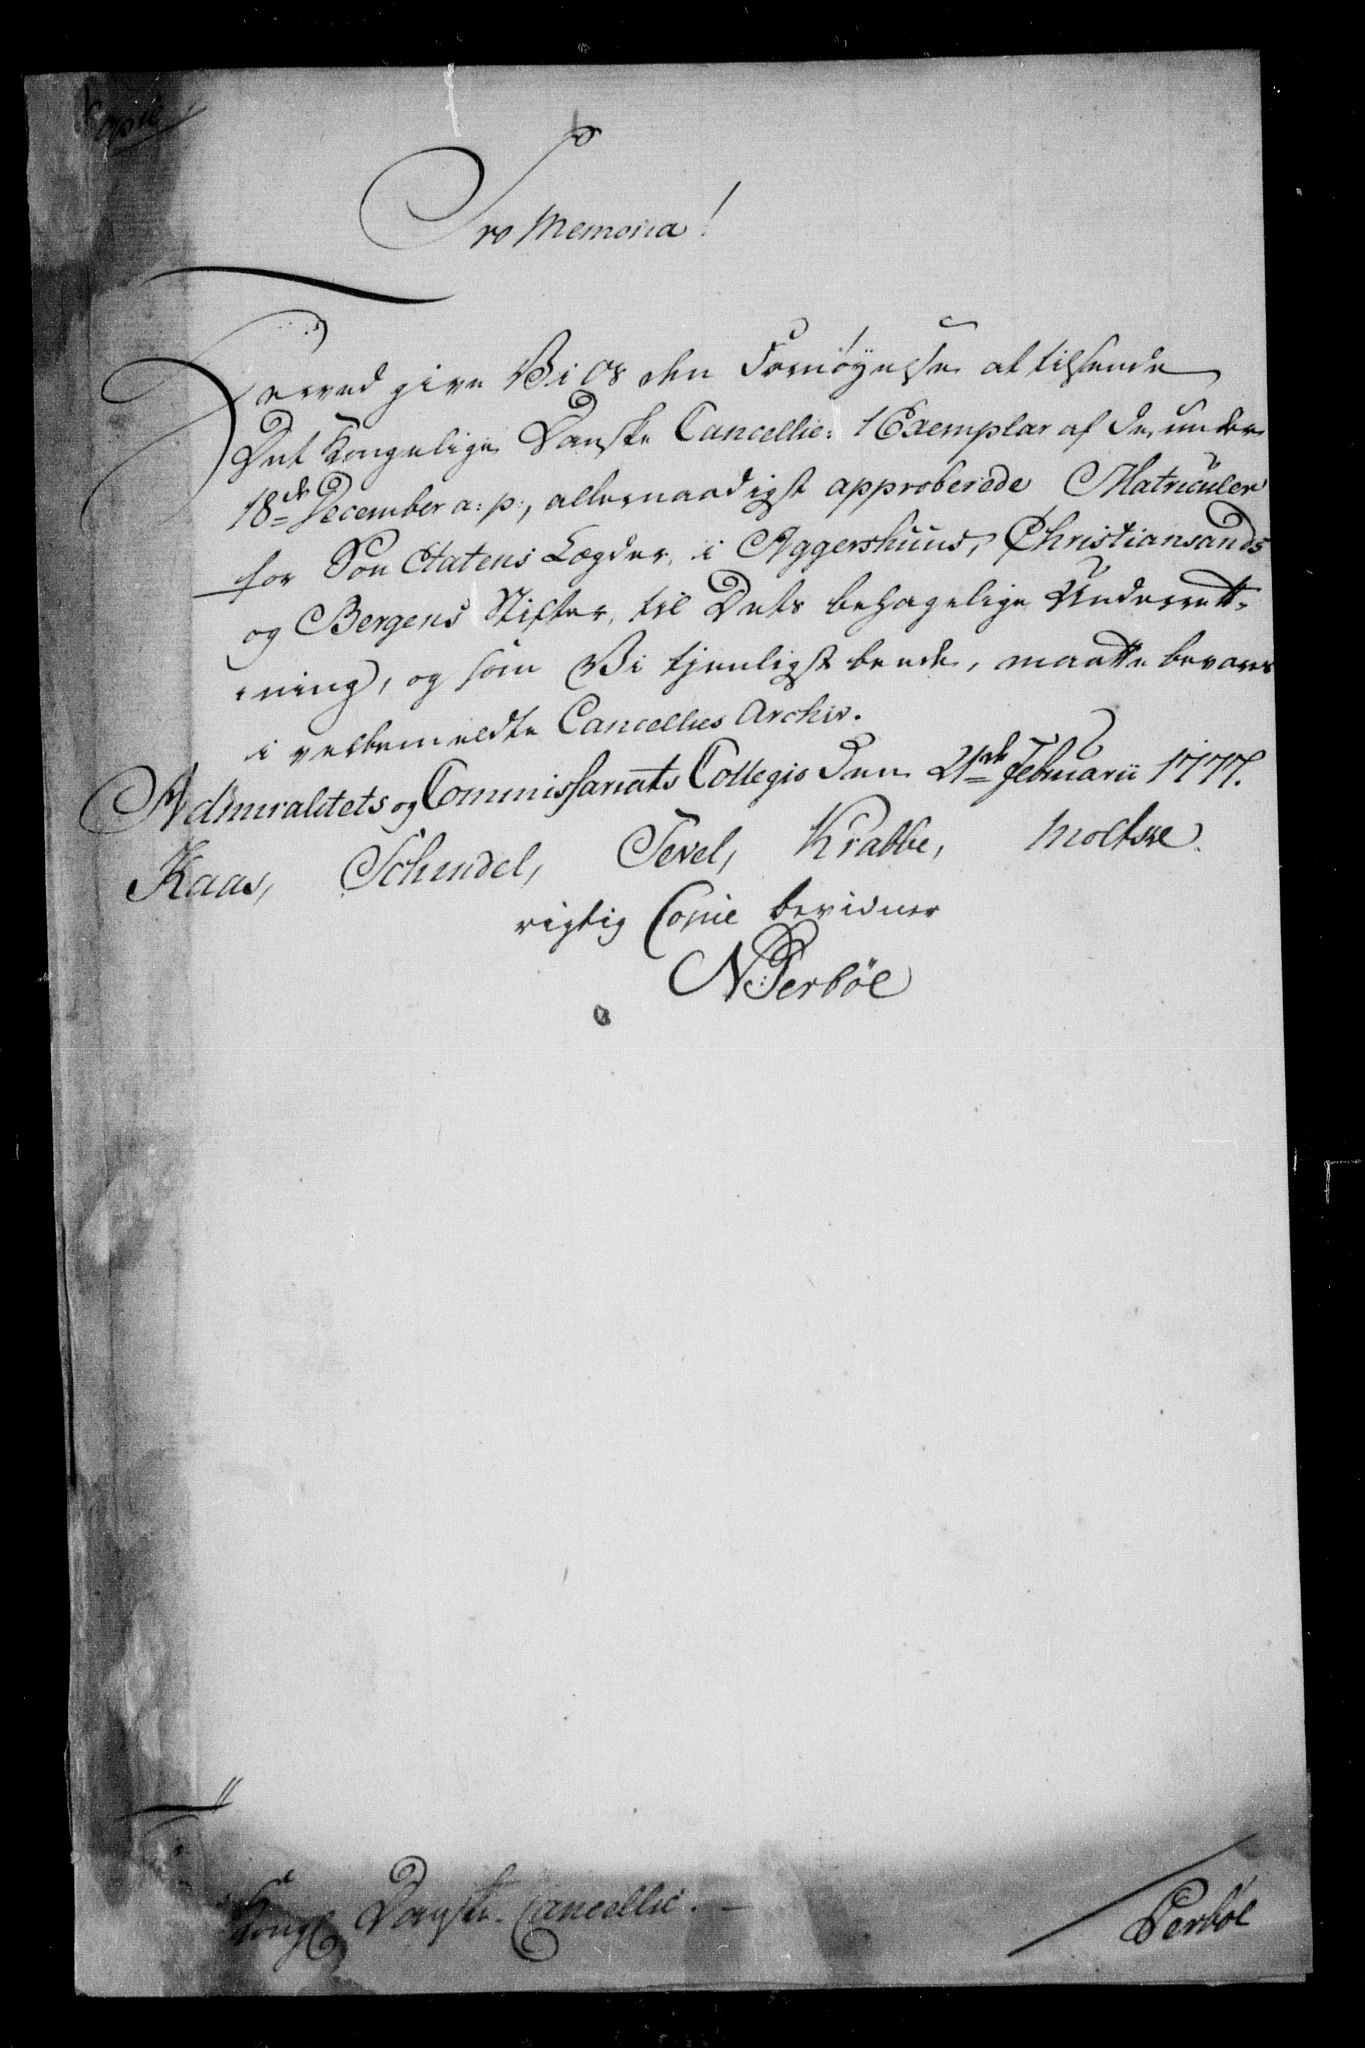 Copie
Pro Memoria!
Herved give Vi Os den Fornöyelse at tilsende
Det Kongelige Danske Cancellie: 1 Exemplar af de under
18de December a: p:, allernaadigst approberede Matriculer
for Söe Etatens Lægder, i Aggershuus, Christiansands
og Bergens Stifter, til Dets behagelige Underrett-
ning, og som Vi tjenligst beede, maatte bevares
i velbemeldte Cancellies Archiv.
Admiralitets og Commissariats Collegio Den 21de Februarii 1777.
Kaas, Schindel, Tevel, Krabbe, Moltke.
rigtig Copie bevidner
N: Perböl
Kongl Danske Cancellie.
Perböl